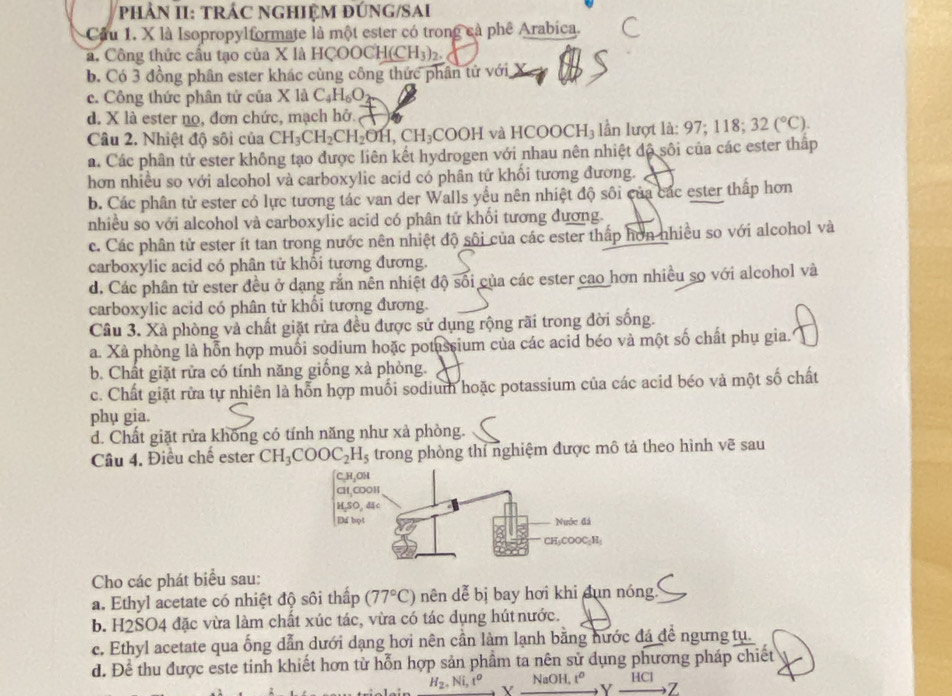 PHẦN II: TRẮC NGHIỆM ĐÚNG/SAI
Câu 1. X là Isopropylformate là một ester có trong cà phê Arabica. C
a. Công thức cấu tạo của X là HCOOCH(CH₃)₂. Đ
b. Có 3 đồng phân ester khác cùng công thức phân tử với X S
c. Công thức phân tử của X là C₄H₆O₂
d. X là ester no, đơn chức, mạch hở.
Câu 2. Nhiệt độ sôi của CH₃CH₂CH₂OH, CH₃COOH và HCOOCH₃ lần lượt là: 97; 118; 32 (°C).
a. Các phân tử ester không tạo được liên kết hydrogen với nhau nên nhiệt độ sôi của các ester thấp
hơn nhiều so với alcohol và carboxylic acid có phân tử khối tương đương. Đ
b. Các phân tử ester có lực tương tác van der Walls yếu nên nhiệt độ sôi của các ester thấp hơn
nhiều so với alcohol và carboxylic acid có phân tử khối tương đương. Đ
c. Các phân tử ester ít tan trong nước nên nhiệt độ sôi của các ester thấp hơn nhiều so với alcohol và
carboxylic acid có phân tử khối tương đương. S
d. Các phân tử ester đều ở dạng rắn nên nhiệt độ sôi của các ester cao hơn nhiều so với alcohol và
carboxylic acid có phân tử khối tương đương. S
Câu 3. Xà phòng và chất giặt rửa đều được sử dụng rộng rãi trong đời sống.
a. Xà phòng là hỗn hợp muối sodium hoặc potassium của các acid béo và một số chất phụ gia. Đ
b. Chất giặt rửa có tính năng giống xà phòng. Đ
c. Chất giặt rửa tự nhiên là hỗn hợp muối sodium hoặc potassium của các acid béo và một số chất
phụ gia. S
d. Chất giặt rửa không có tính năng như xà phòng. S
Câu 4. Điều chế ester CH₃COOC₂H₅ trong phòng thí nghiệm được mô tả theo hình vẽ sau
C₂H₅OH
CH₃COOH
H₂SO₄ đặc
Đá bọt
Nước đá
CH₃COOC₂H₅
Cho các phát biểu sau:
a. Ethyl acetate có nhiệt độ sôi thấp (77°C) nên dễ bị bay hơi khi đun nóng. S
b. H2SO4 đặc vừa làm chất xúc tác, vừa có tác dụng hút nước. Đ
c. Ethyl acetate qua ống dẫn dưới dạng hơi nên cần làm lạnh bằng nước đá để ngưng tụ.
d. Để thu được este tinh khiết hơn từ hỗn hợp sản phẩm ta nên sử dụng phương pháp chiết Đ
H₂, Ni, t° X NaOH, t° Y HCl Z